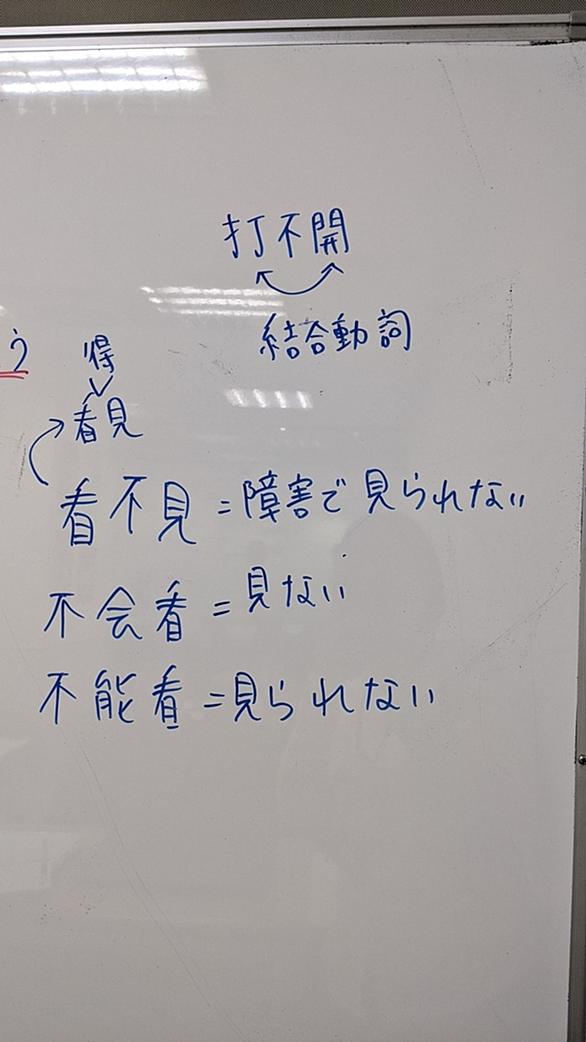 打不開
結合動詞
う
得
看見
看不見=障害で見られない
不会看=見ない
不能看=見られない